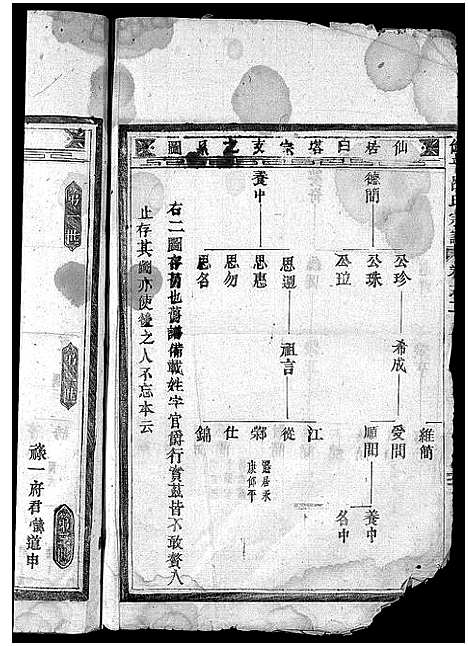 仙居白塔宗支之系圖
德簡
養中
公珍
公珠
公垃
思遜
思惠
思勿
思名
希成
祖言
維簡
愛間
順間
江
從
鄴
仕
錦
遷居永
康仰平
養中
名中
右二圖存舊也舊譜備載姓字官爵行實茲皆不敢贅入
止存其圖亦使後之人不忘本云
第一世
祿一府君 諱道申